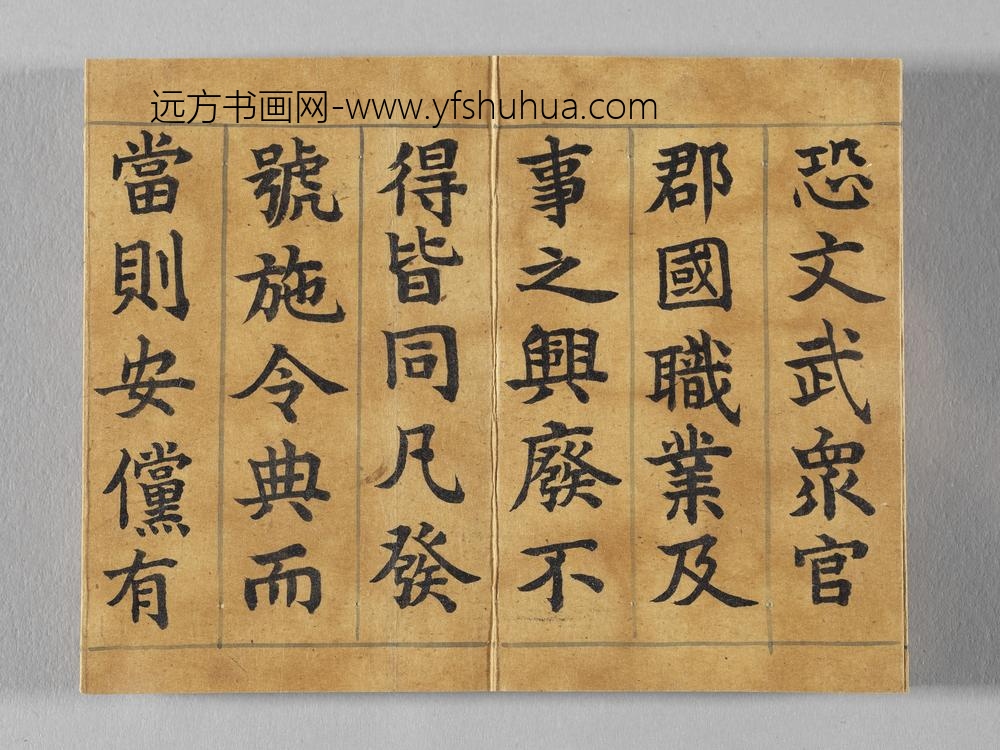 远方书画网-www.yfshuhua.com
恐文武眾官
郡國職業及
事之興廢不
得皆同凡發
號施令典而
當則安儻有